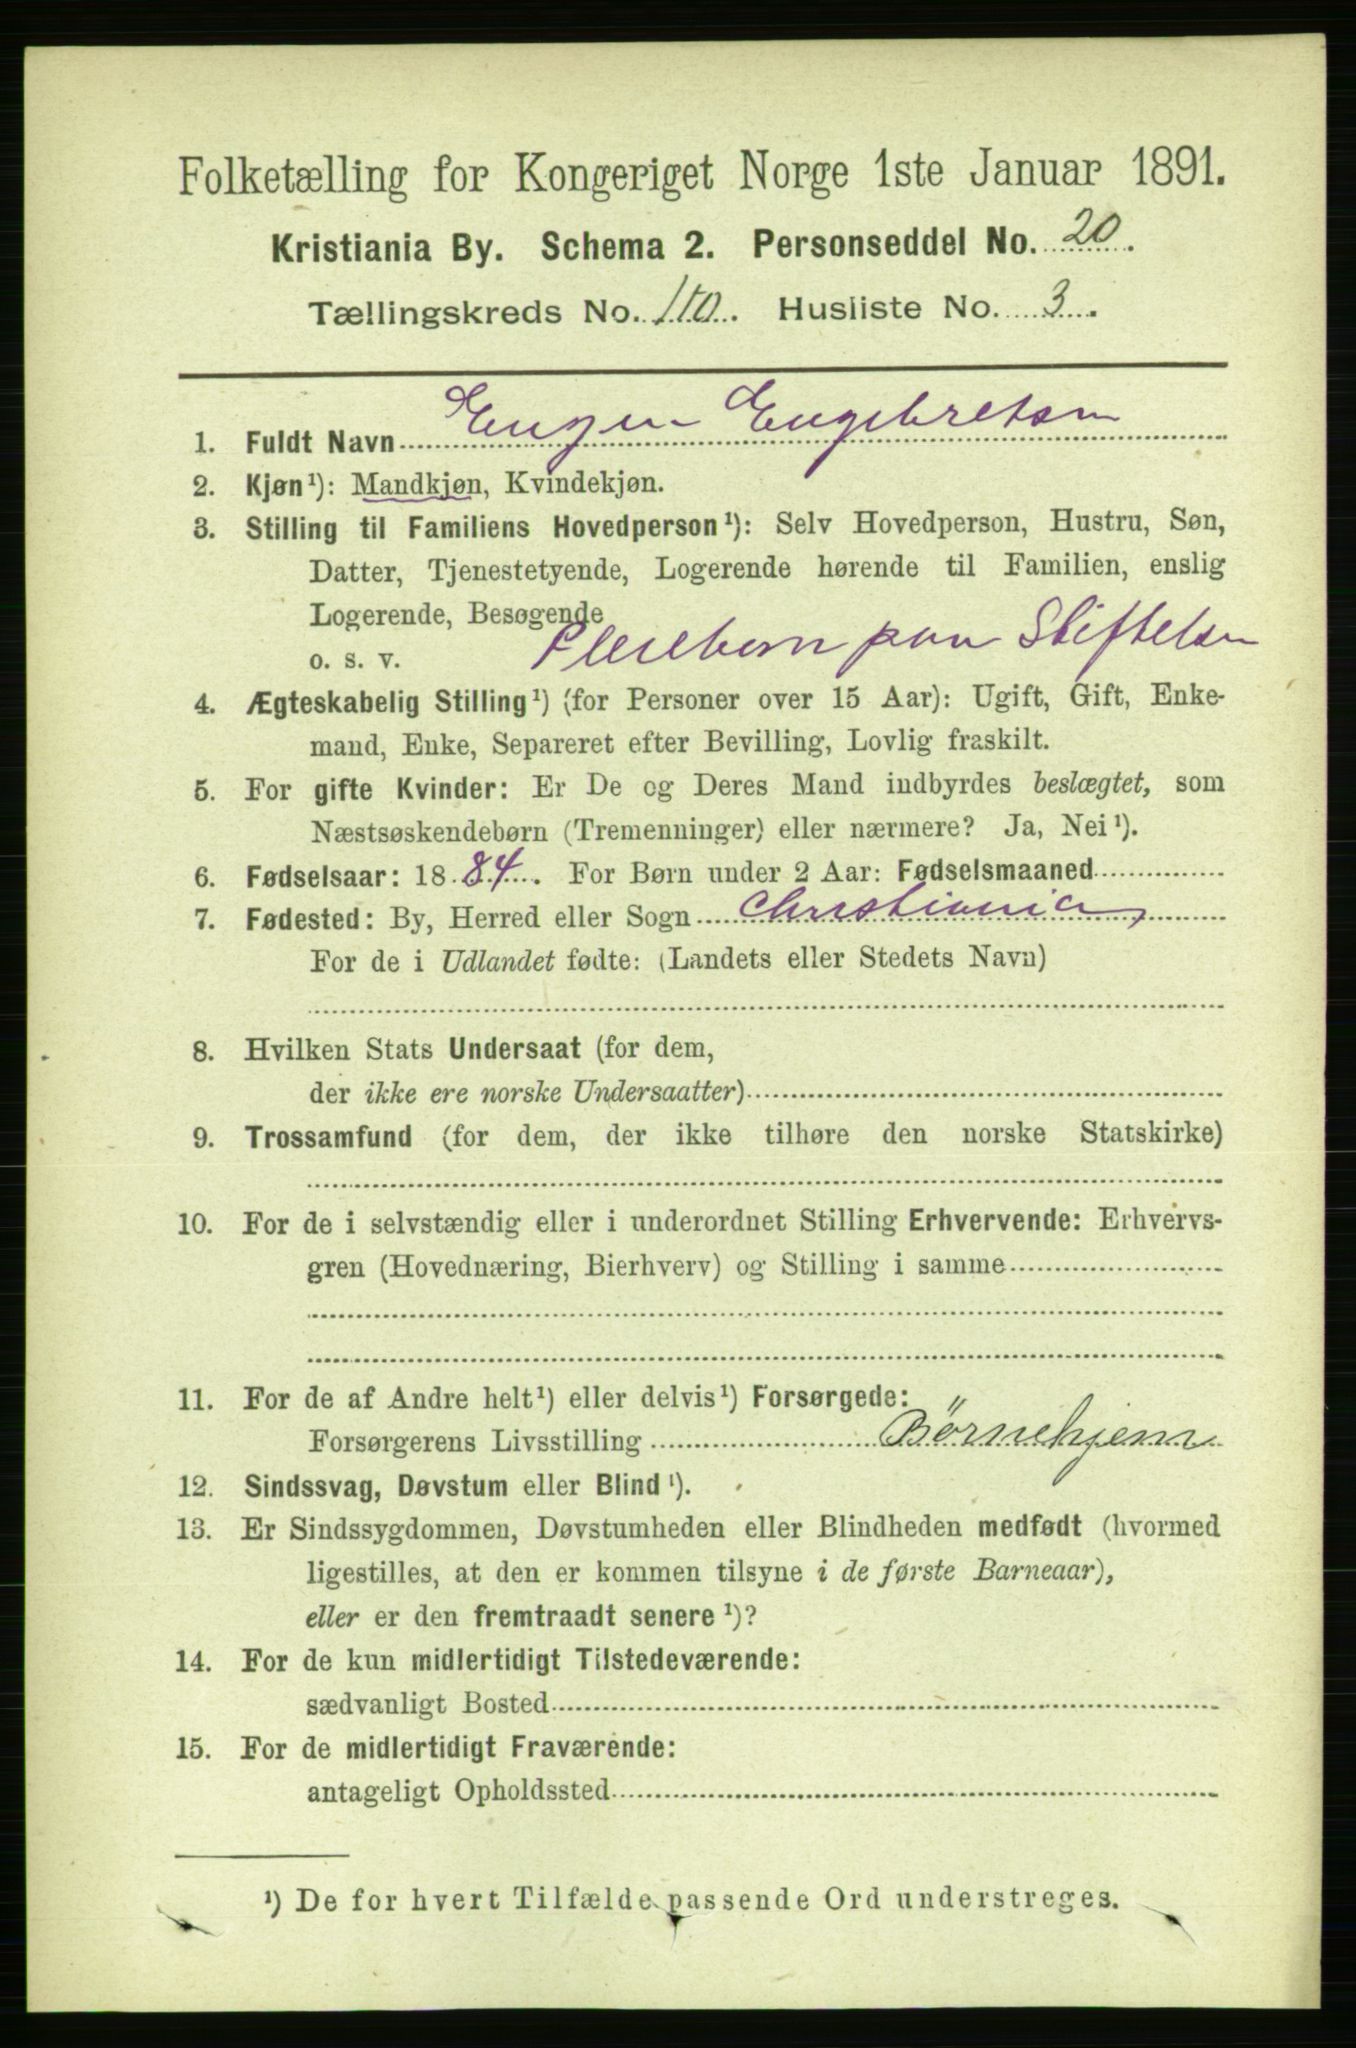 Folketælling for Kongeriget Norge 1ste Januar 1891.
Kristiania By. Schema 2. Personseddel No. 20.
Tællingskreds No. 110. Husliste No. 3.
1. Fuldt Navn Eugen Engebretsen
2. Kjøn¹): Mandkjøn, Kvindekjøn.
3. Stilling til Familiens Hovedperson¹): Selv Hovedperson, Hustru, Søn,
Datter, Tjenestetyende, Logerende hørende til Familien, enslig
Logerende, Besøgende
o. s. v. Pleiebørn paa Stiftelsen
4. Ægteskabelig Stilling¹) (for Personer over 15 Aar): Ugift, Gift, Enke-
mand, Enke, Separeret efter Bevilling, Lovlig fraskilt.
5. For gifte Kvinder: Er De og Deres Mand indbyrdes beslægtet, som
Næstsøskendebørn (Tremenninger) eller nærmere? Ja, Nei¹).
6. Fødselsaar: 1884. For Børn under 2 Aar: Fødselsmaaned
7. Fødested: By, Herred eller Sogn Christiania
For de i Udlandet fødte: (Landets eller Stedets Navn)
8. Hvilken Stats Undersaat (for dem,
der ikke ere norske Undersaatter)
9. Trossamfund (for dem, der ikke tilhøre den norske Statskirke)
10. For de i selvstændig eller i underordnet Stilling Erhvervende: Erhvervs-
gren (Hovednæring, Bierhverv) og Stilling i samme
11. For de af Andre helt¹) eller delvis¹) Forsørgede:
Forsørgerens Livsstilling Börnehjem
12. Sindssvag, Døvstum eller Blind¹).
13. Er Sindssygdommen, Døvstumheden eller Blindheden medfødt (hvormed
ligestilles, at den er kommen tilsyne i de første Barneaar),
eller er den fremtraadt senere¹)?
14. For de kun midlertidigt Tilstedeværende:
sædvanligt Bosted
15. For de midlertidigt Fraværende:
antageligt Opholdssted
¹) De for hvert Tilfælde passende Ord understreges.